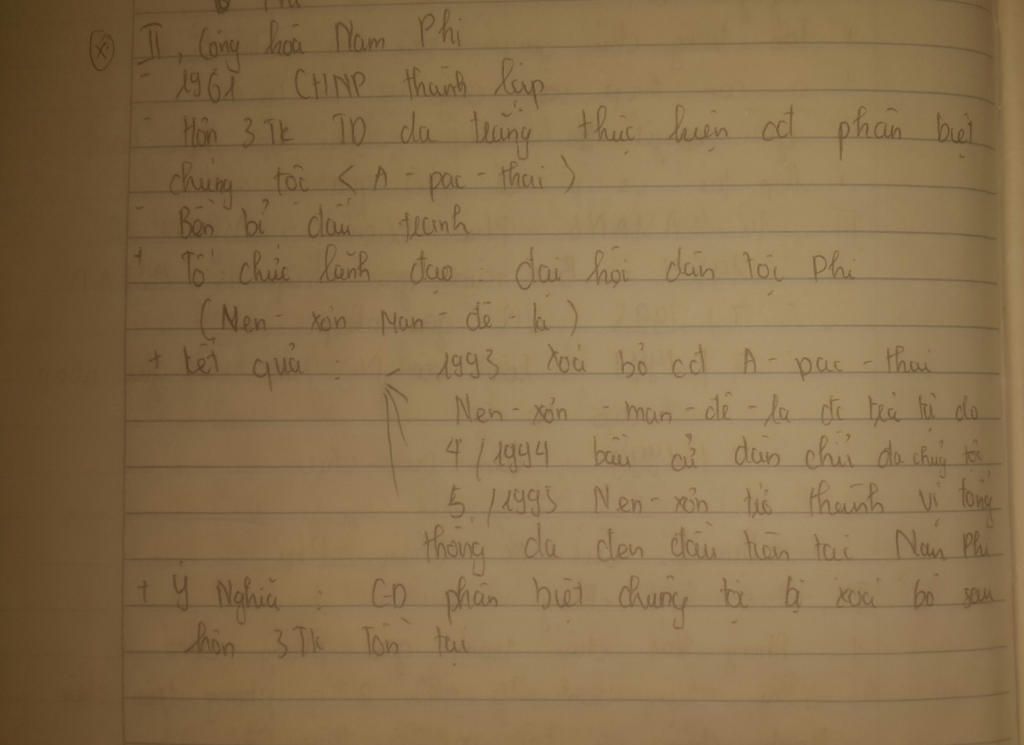 II, Cộng hoà Nam Phi
- 1961 CHNP thành lập
- Hơn 3 TK TD da trắng thực hiện cđ phân biệt
chủng tộc < A - pac - thai >
- Bền bỉ đấu tranh
+ Tổ chức lãnh đạo : đại hội dân tộc Phi
(Nen - xơn Man - đê - la)
+ kết quả : - 1993 xoá bỏ cđ A - pac - thai
Nen - xơn - man - đê - la đc trả tự do
4 / 1994 bầu cử dân chủ đa chủng tộc
5 / 1995 Nen - xơn trở thành vị tổng
thống da đen đầu tiên tại Nam Phi
+ Ý Nghĩa : CĐ phân biệt chủng tộc bị xoá bỏ sau
hơn 3 TK Tồn tại